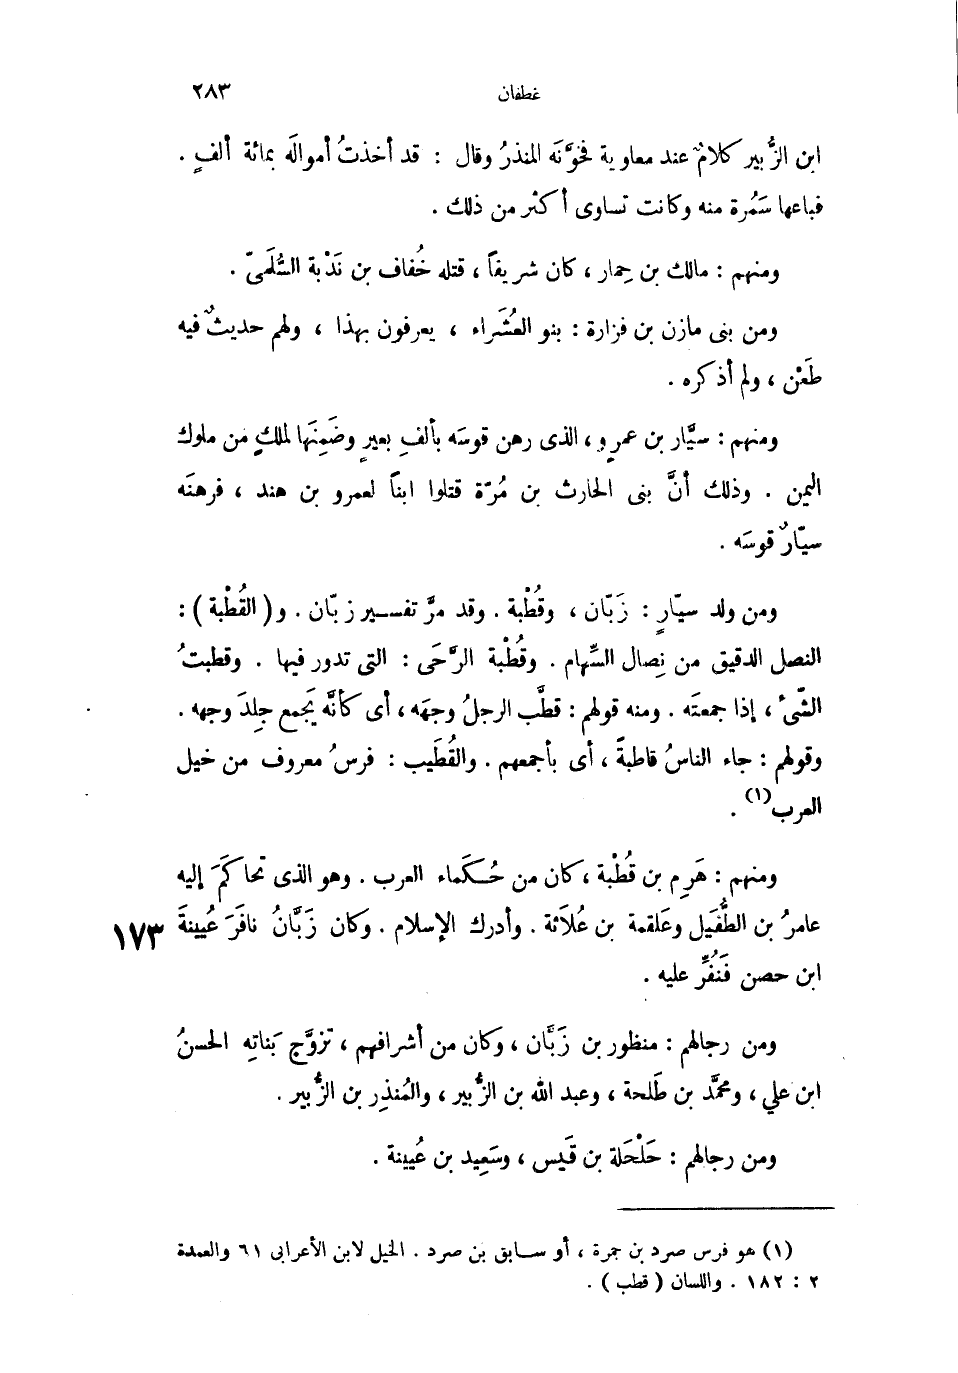 غطفان ٢٨٣
ابن الزُّبير كلامٌ عند معاوية فخوَّنَه المنذرُ وقال : قد أخذتُ أموالَه بمائة ألفٍ .
فباعها سَمُرة منه وكانت تساوى أكثر من ذلك .
ومنهم : مالك بن حِمار ، كان شريفاً ، قتله خُفاف بن نَدْبة السُّلَمىّ .
ومن بنى مازن بن فزارة : بنو العُشَراء ، يعرفون بهذا ، ولهم حديثٌ فيه
طَعْن ، ولم أذكره .
ومنهم : سيَّار بن عمرٍو ، الذى رهن قوسَه بألفِ بعيرٍ وضَمِنَها لملكٍ من ملوك
اليمن . وذلك أنَّ بنى الحارث بن مُرّة قتلوا ابناً لعمرو بن هند ، فرهنَه
سيّارٌ قوسَه .
ومن ولد سيّارٍ : زَبّان ، وقُطْبة . وقد مرَّ تفسير زبّان . و ( القُطْبة ) :
النصل الدقيق من نِصال السِّهام . وقُطْبة الرَّحَى : التى تدور فيها . وقطبتُ
الشّىءَ ، إذا جمعتَه . ومنه قولهم : قطَّب الرجلُ وجهَه ، أى كأنَّه يَجمع جِلدَ وجهه .
وقولهم : جاء الناسُ قاطبةً ، أى بأجمعهم . والقُطَيب : فرسٌ معروف من خيل
العرب(١) .
ومنهم : هَرِم بن قُطْبة ، كان من حُكَماء العرب . وهو الذى تحاكَمَ إليه
عامرُ بن الطُّفَيل وعَلقمة بن عُلاَثة . وأدرك الإسلام . وكان زَبَّانُ نافَرَ عُيينةَ ١٧٣
ابن حصن فَنُفِّر عليه .
ومن رجالهم : منظور بن زَبَّان ، وكان من أشرافهم ، تزوَّج بَناتِه الحسنُ
ابن علي ، ومحمَّد بن طَلحة ، وعبد الله بن الزُّبير ، والمُنذِر بن الزُّبير .
ومن رجالهم : حَلْحَلة بن قَيس ، وسَعِيد بن عُيينة .
(١) هو فرس صرد بن جمرة ، أو سابق بن صرد . الخيل لابن الأعرابى ٦١ والعمدة
٢ : ١٨٢ . واللسان ( قطب ) .